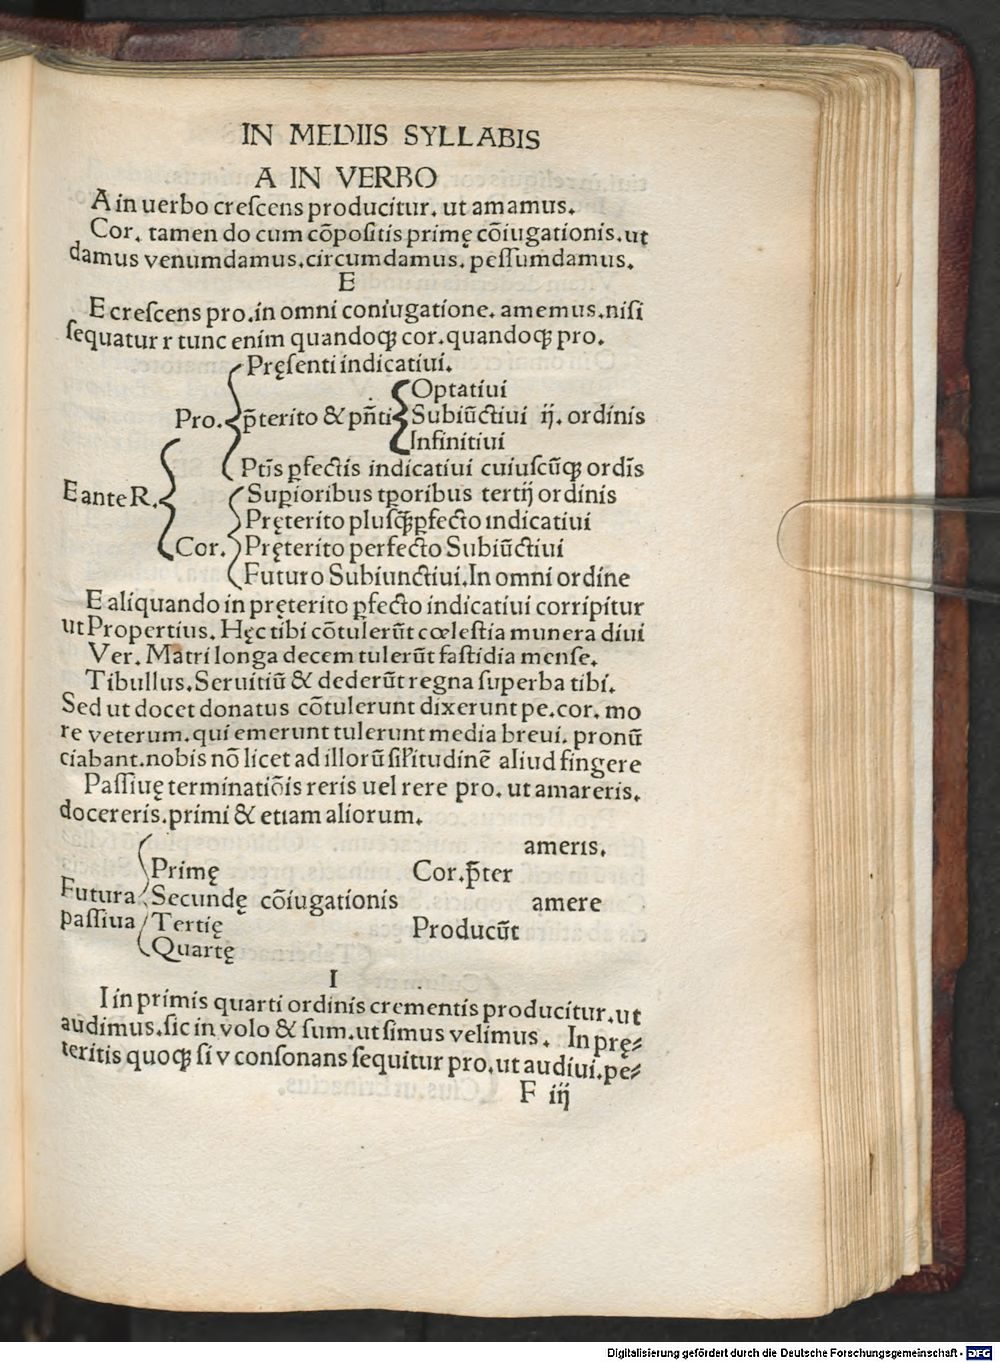 IN MEDIIS SYLLABIS
A IN VERBO
A in uerbo creſcens producitur. ut amamus.
Cor. tamen do cum cõpoſitis primę cõiugationis. ut
damus venumdamus. circumdamus. peſſumdamus.
E
E creſcens pro. in omni coniugatione. amemus. niſi
ſequatur r tunc enim quandoqꝫ cor. quandoqꝫ pro.
Pręſenti indicatiui.
Optatiui
Pro. p̃terito & pñti Subiũctiui ij. ordinis
Infinitiui
Ptĩs ꝑfectis indicatiui cuiuſcũqꝫ ordĩs
E ante R. Suꝑioribus tꝑoribus tertij ordinis
Pręterito pluſq̃ꝑfecto indicatiui
Cor. Pręterito perfecto Subiũctiui
Futuro Subiunctiui. In omni ordine
E aliquando in pręterito ꝑfecto indicatiui corripitur
ut Propertius. Hęc tibi cõtulerũt cœleſtia munera diui
Ver. Matri longa decem tulerũt faſtidia menſe.
Tibullus. Seruitiũ & dederũt regna ſuperba tibi.
Sed ut docet donatus cõtulerunt dixerunt pe. cor. mo
re veterum. qui emerunt tulerunt media breui. pronũ
ciabant. nobis nõ licet ad illorũ ſil'itudinẽ aliud fingere
Paſſiuę terminatiõis reris uel rere pro. ut amareris.
docereris. primi & etiam aliorum.
ameris.
Primę Cor. p̃ter
Futura Secundę cõiugationis amere
paſſiua Tertię Producũt
Quartę
I
I in primis quarti ordinis crementis producitur. ut
audimus. ſic in volo & ſum. ut ſimus velimus. In pręꝫ
teritis quoqꝫ ſi v conſonans ſequitur pro. ut audiui. pe⸗
F iij
Digitalisierung gefördert durch die Deutsche Forschungsgemeinschaft - DFG